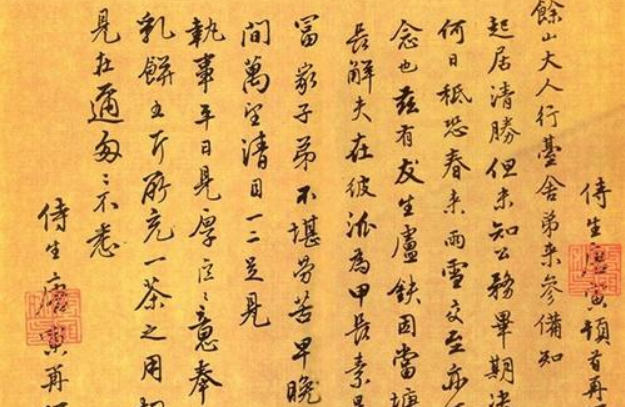 侍生唐寅頓首再
餘山大人行臺舍弟來參備知
起居清勝但未知公務畢期決
何日祗恐春來雨雪交至亦
念也茲有友生盧鈇因當塘
長解夫在彼派為甲長素
富家子弟不堪勞苦早晚
間萬望清目一二足見
執事平日見厚意奉
乳餅五斤所充一茶之用
見在邇匆々不悉
侍生唐寅再